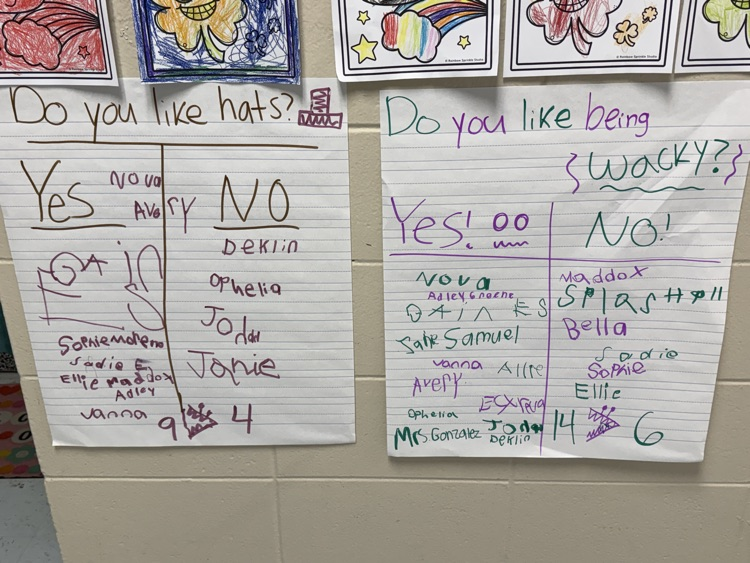 Do you like hats?
Yes
NO
Nova
Avery
Gaines
Sophie moreno
Sadie E
Ellie maddox
Adley
vanna
9
Deklin
Ophelia
Janie
4
Do you like being
wacky?
Yes!
No!
Nova
Adley Graene
GAINES
Sahe Samuel
vanna Allie
Avery
Ophelia
Mrs. Gonzalez
Deklin
14
maddox
Bella
Sadie
Sophie
Ellie
6